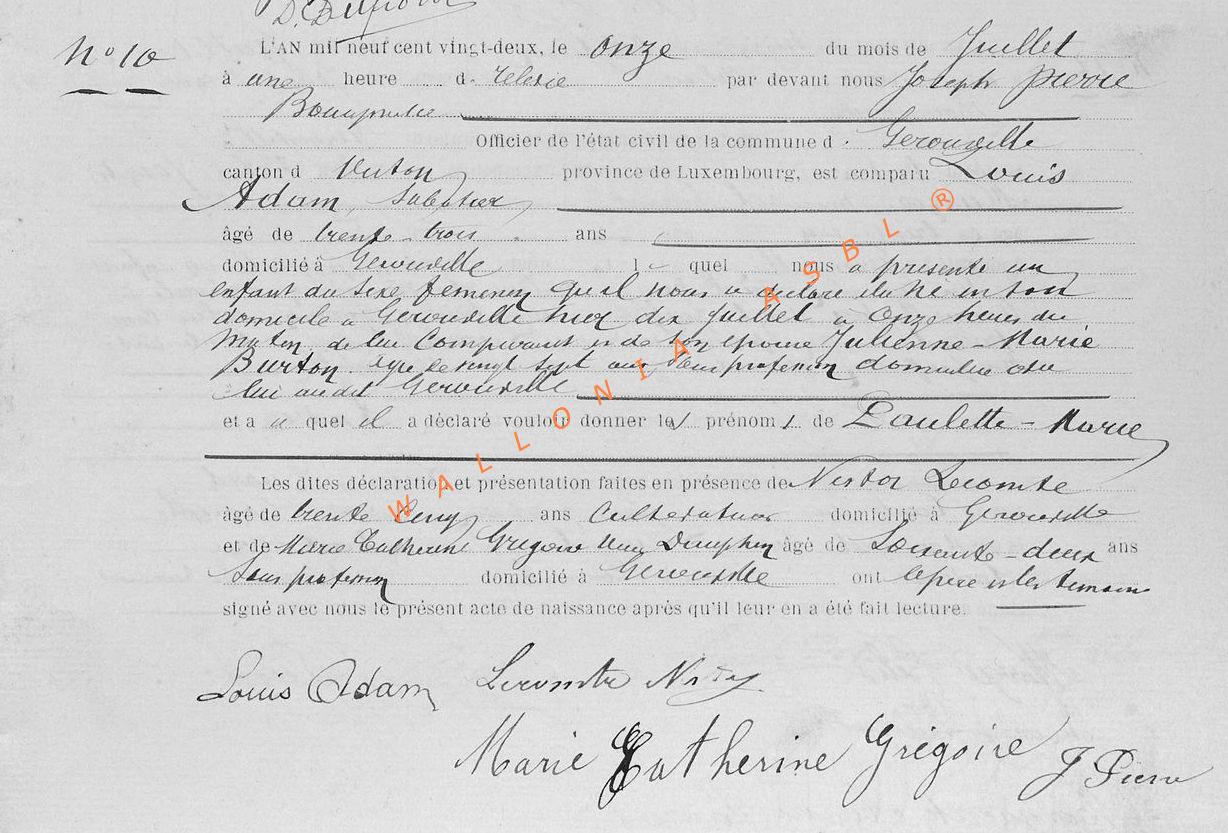 N° 10
L'AN mil neuf cent vingt-deux, le onze du mois de Juillet
à une heure d. relevée par devant nous Joseph Pierre
Bourgmestre
Officier de l'état civil de la commune d. Gerouville
canton d Virton province de Luxembourg, est comparu Louis
Adam, Sabotier
âgé de trente-trois ans
domicilié à Gerouville le quel nous a présenté un
enfant du sexe féminin qu'il nous a déclaré être né en son
domicile à Gerouville hier dix Juillet à onze heures du
matin, de lui comparant et de son épouse Julienne-Marie
Burton âgée de vingt sept ans sans profession domiciliée avec
lui audit Gerouville
et a u quel il a déclaré vouloir donner les prénoms de Paulette-Marie
Les dites déclaration et présentation faites en présence de Nestor Lecomte
âgé de trente cinq ans Cultivateur domicilié à Gerouville
et de Marie Catherine Grégoire Veuve Dauphin âgé de Soixante-deux ans
Sans profession domicilié à Gerouville ont le père et les témoins
signé avec nous le présent acte de naissance après qu'il leur en a été fait lecture.
Louis Adam Lecomte
Marie Catherine Grégoire J Pierre
WALLONIA ASBL ®